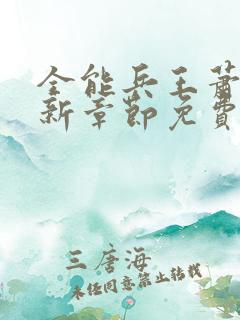 全能兵王萧
新章节免费
三唐海
未经同意禁止转载